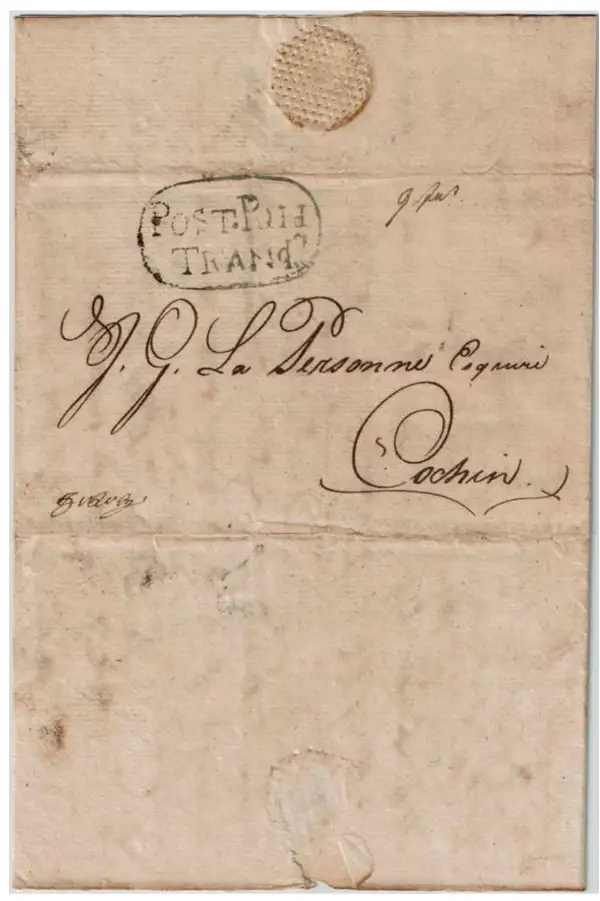 POST. PAID
TRANQ.
J. G. La Personne Esquire
Cochin.